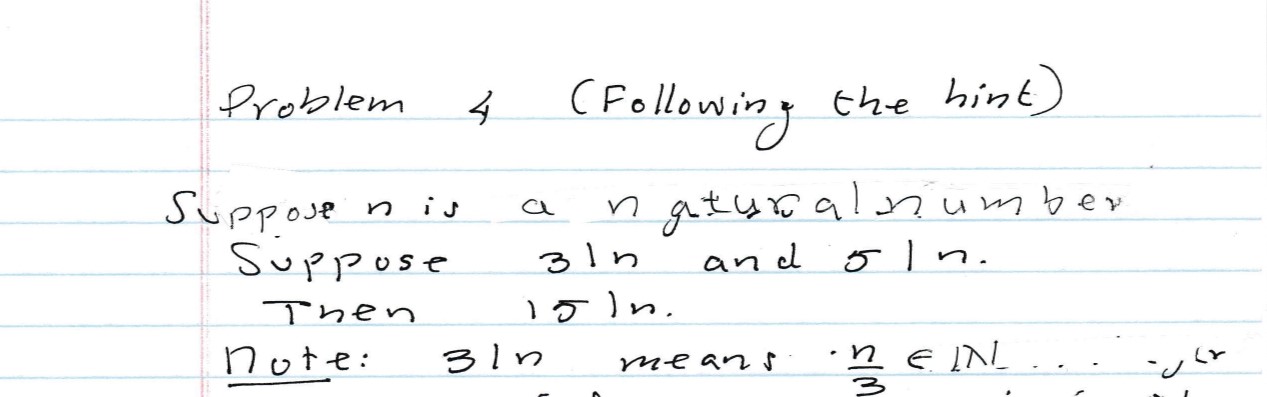 Problem 4 (Following the hint)
Suppose n is a natural number
Suppose 3|n and 5|n.
Then 15|n.
Note: 3|n means n/3 ∈ ℕ ...